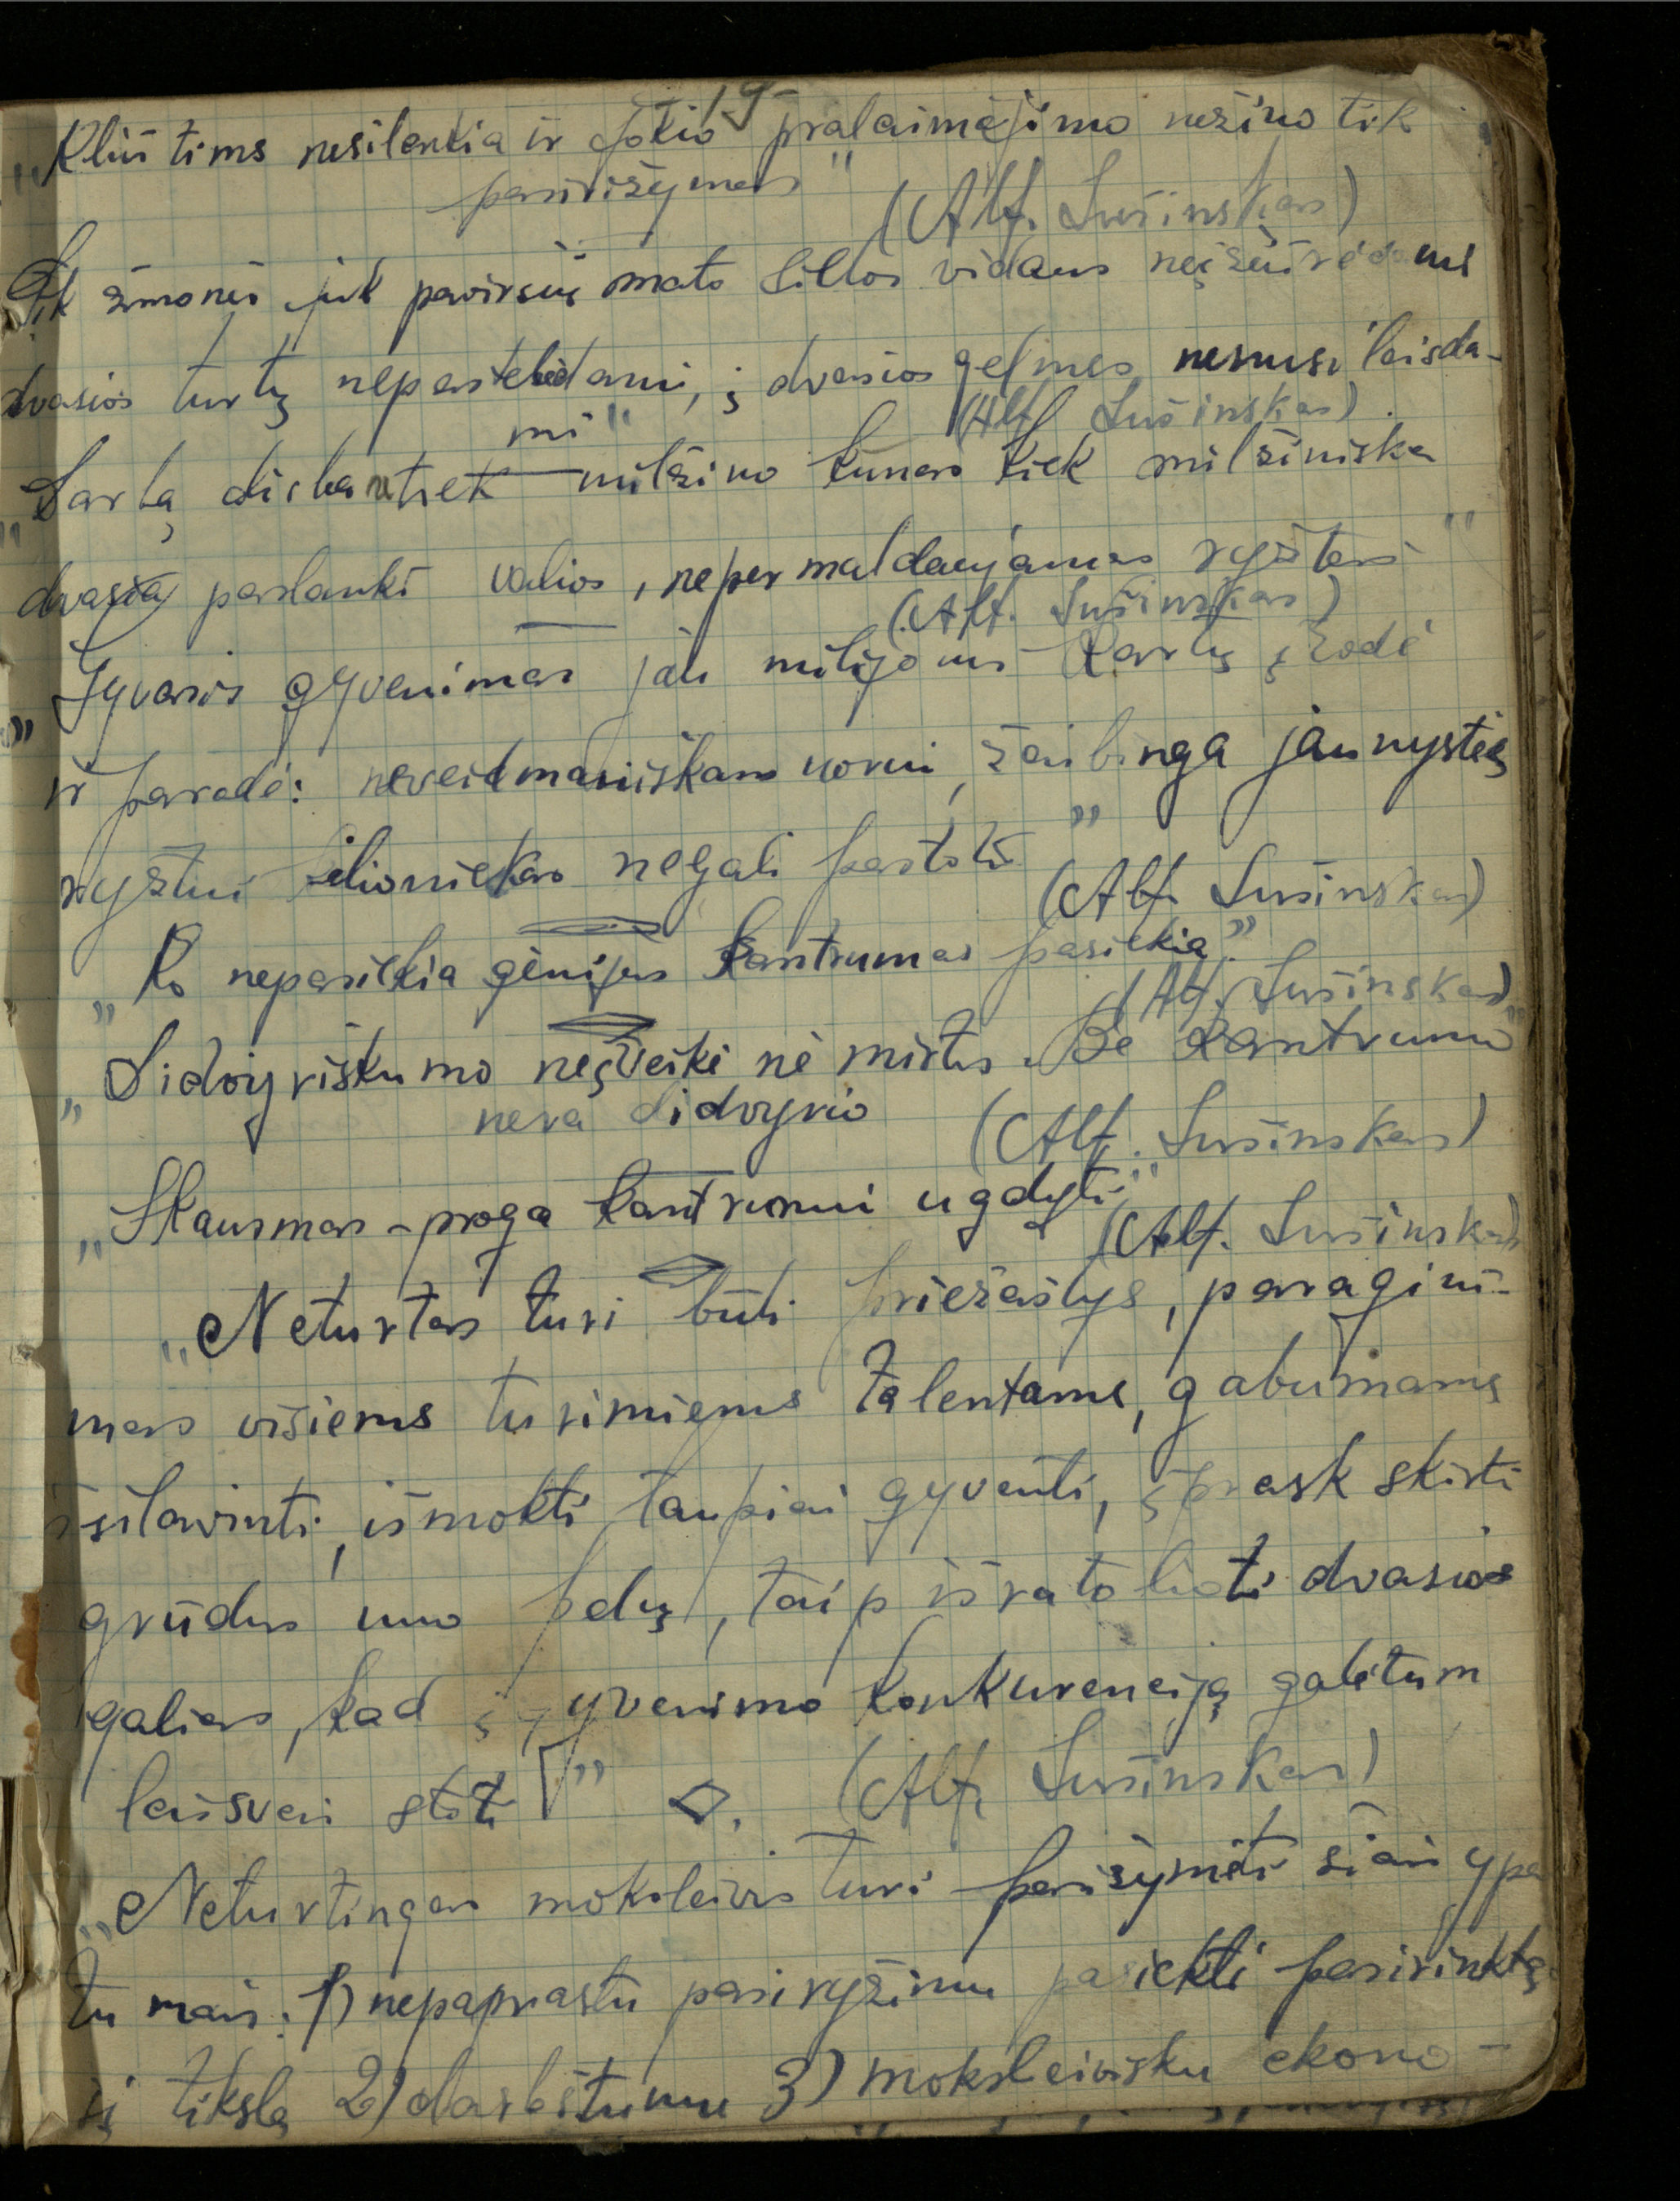 19
„Kliūtims nesilenkia ir jokio pralaimėjimo nežino tik
pasiryžymas"
(Alf. Sušinskas)
Tik žmonės juk paviršių mato šilos vidaus neįžiūrėdami
dvasios turtų nepastebėdami, į dvasios gelmes nenusileisda-
mi"
(Alf. Sušinskas).
„Darbą dirba ne tiek milžino kūnas kiek milžiniška
dvasia paslanki valios, nepermaldaujamas ryžtas"
(Alf. Sušinskas)
„Gyvasis gyvenimas jau milijonus kartų įrodė
ir parodė: neveidmainiškam norui, žaibinga jaunystės
ryžtui niekas negali pastoti"
(Alf. Sušinskas)
„Ko nepasiekia gėnijus kantrumas pasiekia".
(Alf. Sušinskas)
„Didvyriškumo neįveiki nė mirtis. Be kantrumo
nėra didvyrio"
(Alf. Sušinskas)
„Skausmas – proga kantrumui ugdyti."
(Alf. Sušinskas)
„Neturtas turi būti priežastys, paragini-
mas visiems turimiems talentams, gabumams
išsilavinti, išmokti taupiai gyventi, įprask skirti
grūdus nuo pelų, taip išratolioti dvasios
galias, kad į gyvenimo konkurenciją galėtum
laisvai stoti" (Alf. Sušinskas)
„Neturtingas moksleivis turi pasižymėti šiais ypa
tumais: 1) nepaprastu pasiryžimu pasiekti pasirinktą
jį tikslą 2) darbštumu 3) moksleivišku ekono-